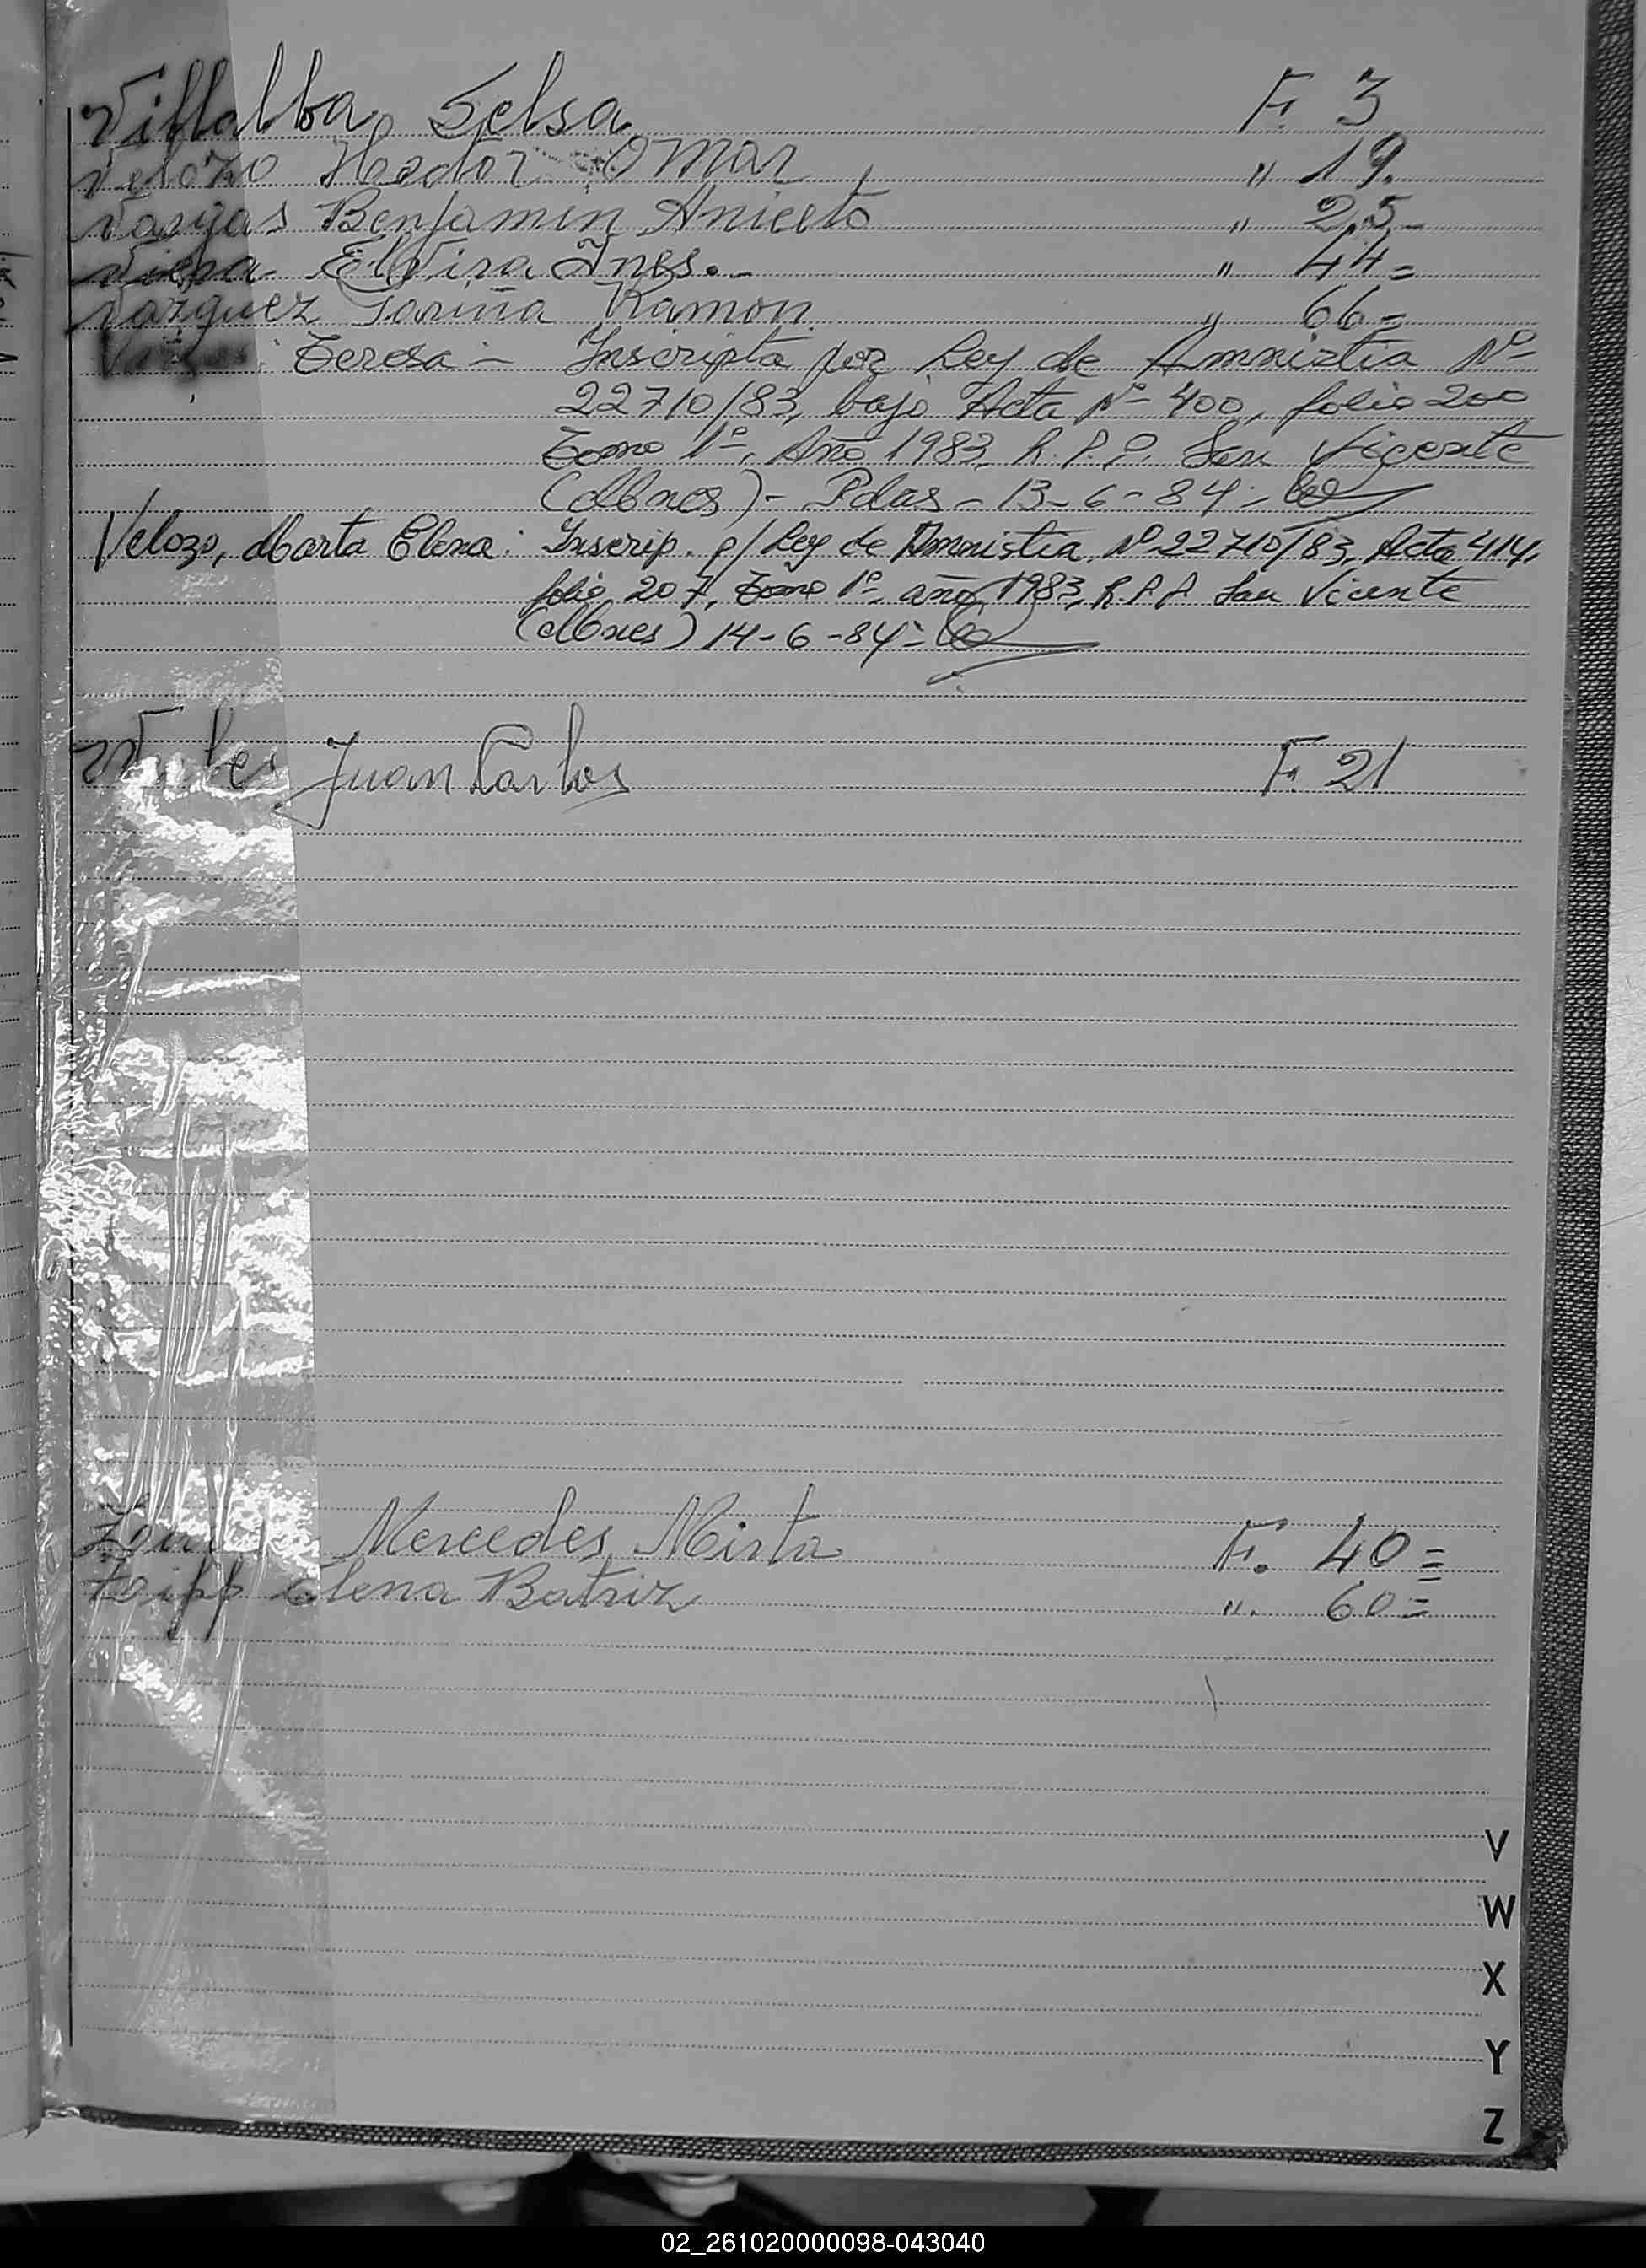 Villalba, Selsa F. 3
Velozo Hector Omar " 19.
Vargas Benjamin Aniceto " 25-
Viera Elvira Ines.- " 44=
Vazquez Fariña Ramon. " 66=
Teresa:- Inscripta por Ley de Amnistia Nº-
22710/83, bajo Acta Nº- 400, folio 200
Tomo 1º-, Año 1983, R.P.P. San Vicente
(Mnes)- Pdas- 13-6-84-
Velozo, Marta Elena: Inscrip. p/ Ley de Amnistia Nº 22710/83, Acta 414,
folio 207, Tomo 1º-, año 1983, R.P.P San Vicente
(Mnes) 14-6-84-
Juan Carlos F. 21
Mercedes, Mirta F. 40=
Elena Batriz ". 60=
V
W
X
Y
Z
02_261020000098-043040